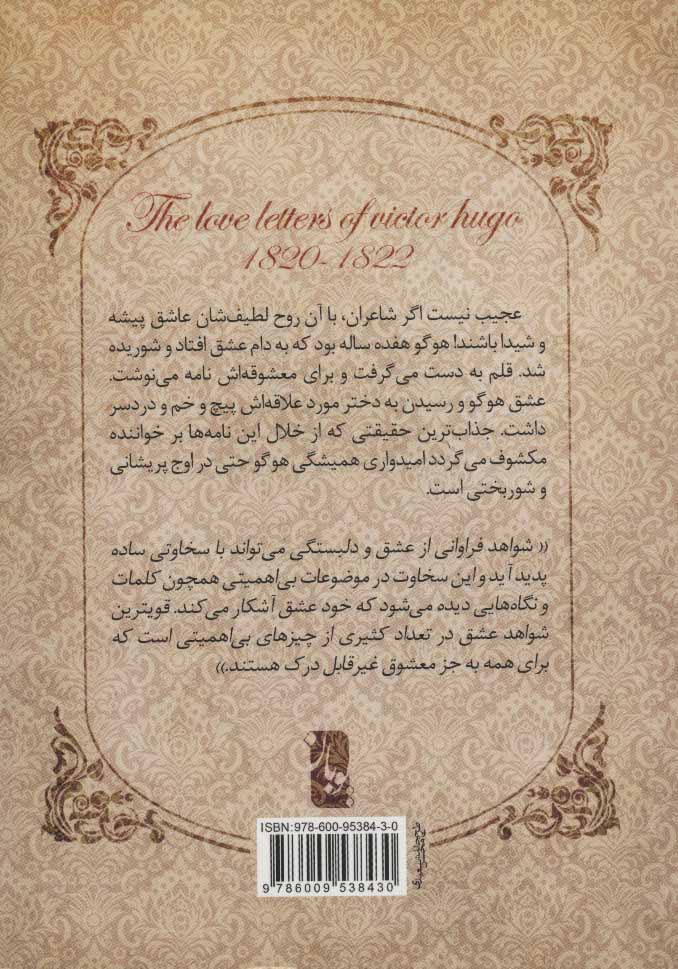 The love letters of victor hugo
1820-1822
عجیب نیست اگر شاعران، با آن روح لطیف‌شان عاشق پیشه
و شیدا باشند! هوگو هفده ساله بود که به دام عشق افتاد و شوریده
شد. قلم به دست می‌گرفت و برای معشوقه‌اش نامه می‌نوشت.
عشق هوگو و رسیدن به دختر مورد علاقه‌اش پیچ و خم و دردسر
داشت. جذاب‌ترین حقیقتی که از خلال این نامه‌ها بر خواننده
مکشوف می‌گردد امیدواری همیشگی هوگو حتی در اوج پریشانی
و شوربختی است.
(( شواهد فراوانی از عشق و دلبستگی می‌تواند با سخاوتی ساده
پدید آید و این سخاوت در موضوعات بی‌اهمیتی همچون کلمات
و نگاه‌هایی دیده می‌شود که خود عشق آشکار می‌کند. قویترین
شواهد عشق در تعداد کثیری از چیزهای بی‌اهمیتی است که
برای همه به جز معشوق غیرقابل درک هستند.))
ISBN:978-600-95384-3-0
9 786009 538430